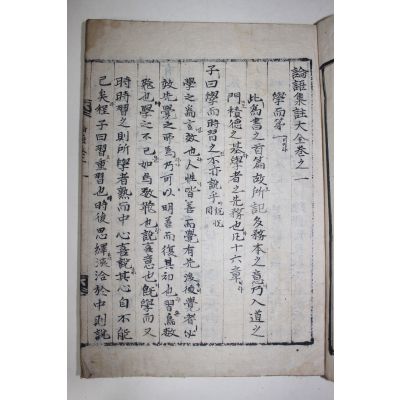 論語集註大全卷之一
學而第一
此爲書之首篇故所記多務本之意乃入道之
門積德之基學者之先務也凡十六章
子曰學而時習之不亦說乎
學之爲言效也人性皆善而覺有先後後覺者必
效先覺之所爲乃可以明善而復其初也習鳥數
飛也學之不已如鳥數飛也說喜意也旣學而又
時時習之則所學者熟而中心喜說其進自不能
已矣程子曰習重習也時復思繹浹洽於中則說